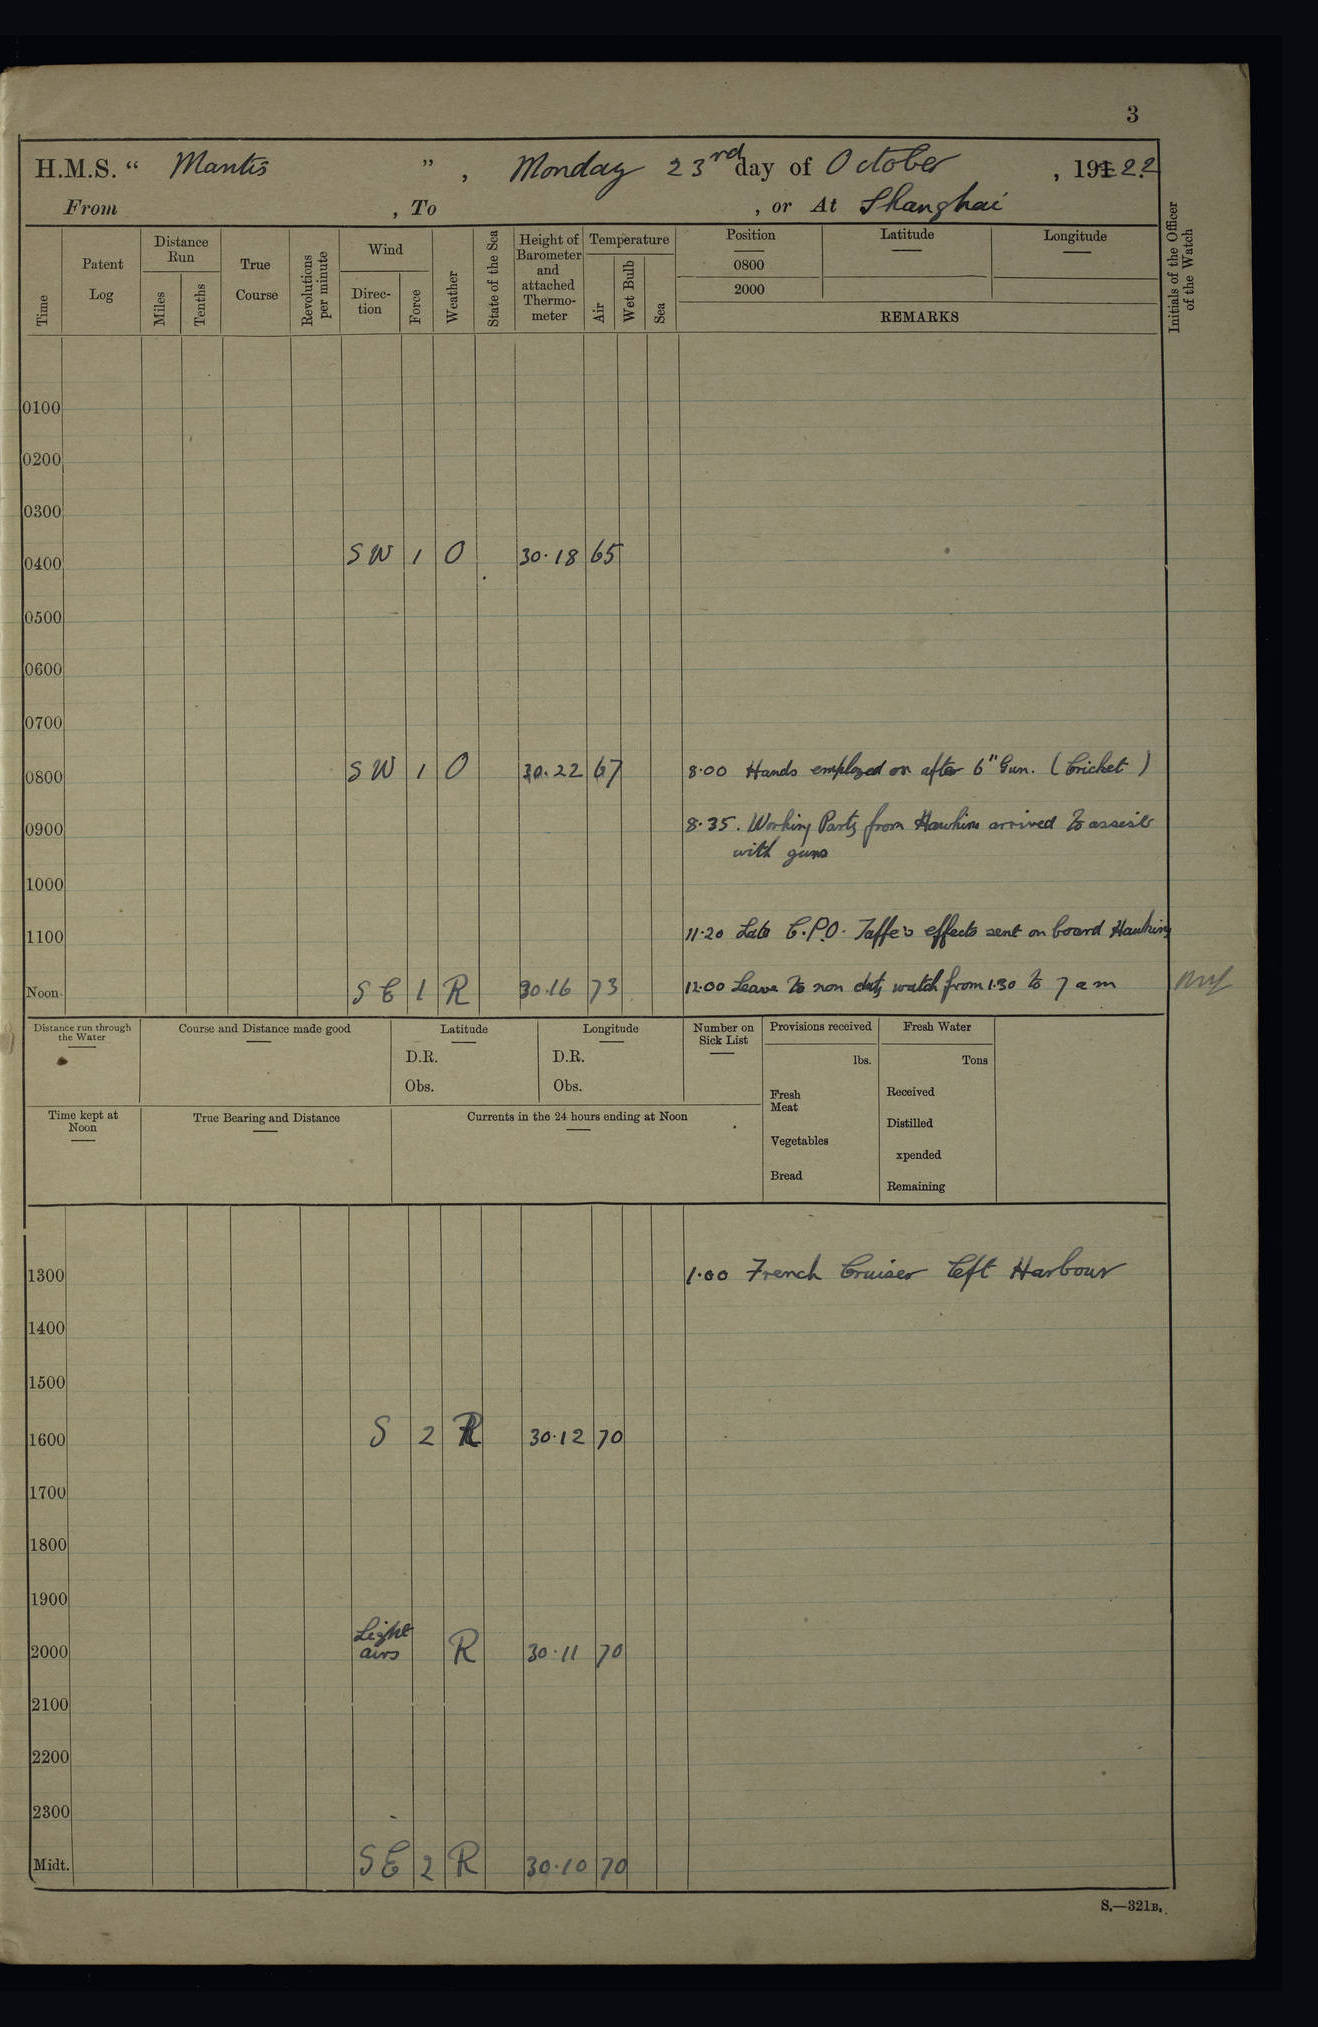 3
H.M.S. “ Mantis ” , Monday 23rd day of October , 191 22
From , To , or At Shanghai
Time
Patent Log
Distance Run
Miles
Tenths
True Course
Revolutions per minute
Wind
Direc-tion
Force
Weather
State of the Sea
Height of Barometer and attached Thermo-meter
Temperature
Air
Wet Bulb
Sea
Position
0800
2000
Latitude
Longitude
REMARKS
Initials of the Officer of the Watch
0100
0200
0300
0400 SW 1 O 30.18 65
0500
0600
0700
0800 SW 1 O 30.22 67 8.00 Hands employed on after 6" Gun. (Cricket)
0900 8.35. Working Party from Hawkins arrived to assist
with guns
1000
1100 11.20 Late C.P.O. Taffe's effects sent on board Hawkins
Noon SE 1 R 30.16 73 12.00 Leave to non duty watch from 1.30 to 7 am
Distance run through the Water
Course and Distance made good
Latitude
D.R.
Obs.
Longitude
D.R.
Obs.
Number on Sick List
Provisions received
lbs.
Fresh Meat
Vegetables
Bread
Fresh Water
Tons
Received
Distilled
xpended
Remaining
Time kept at Noon
True Bearing and Distance
Currents in the 24 hours ending at Noon
1300 1.00 French Cruiser left Harbour
1400
1500
1600 S 2 R 30.12 70
1700
1800
1900
2000 Light airs R 30.11 70
2100
2200
2300
Midt. SE 2 R 30.10 70
S.—321B.